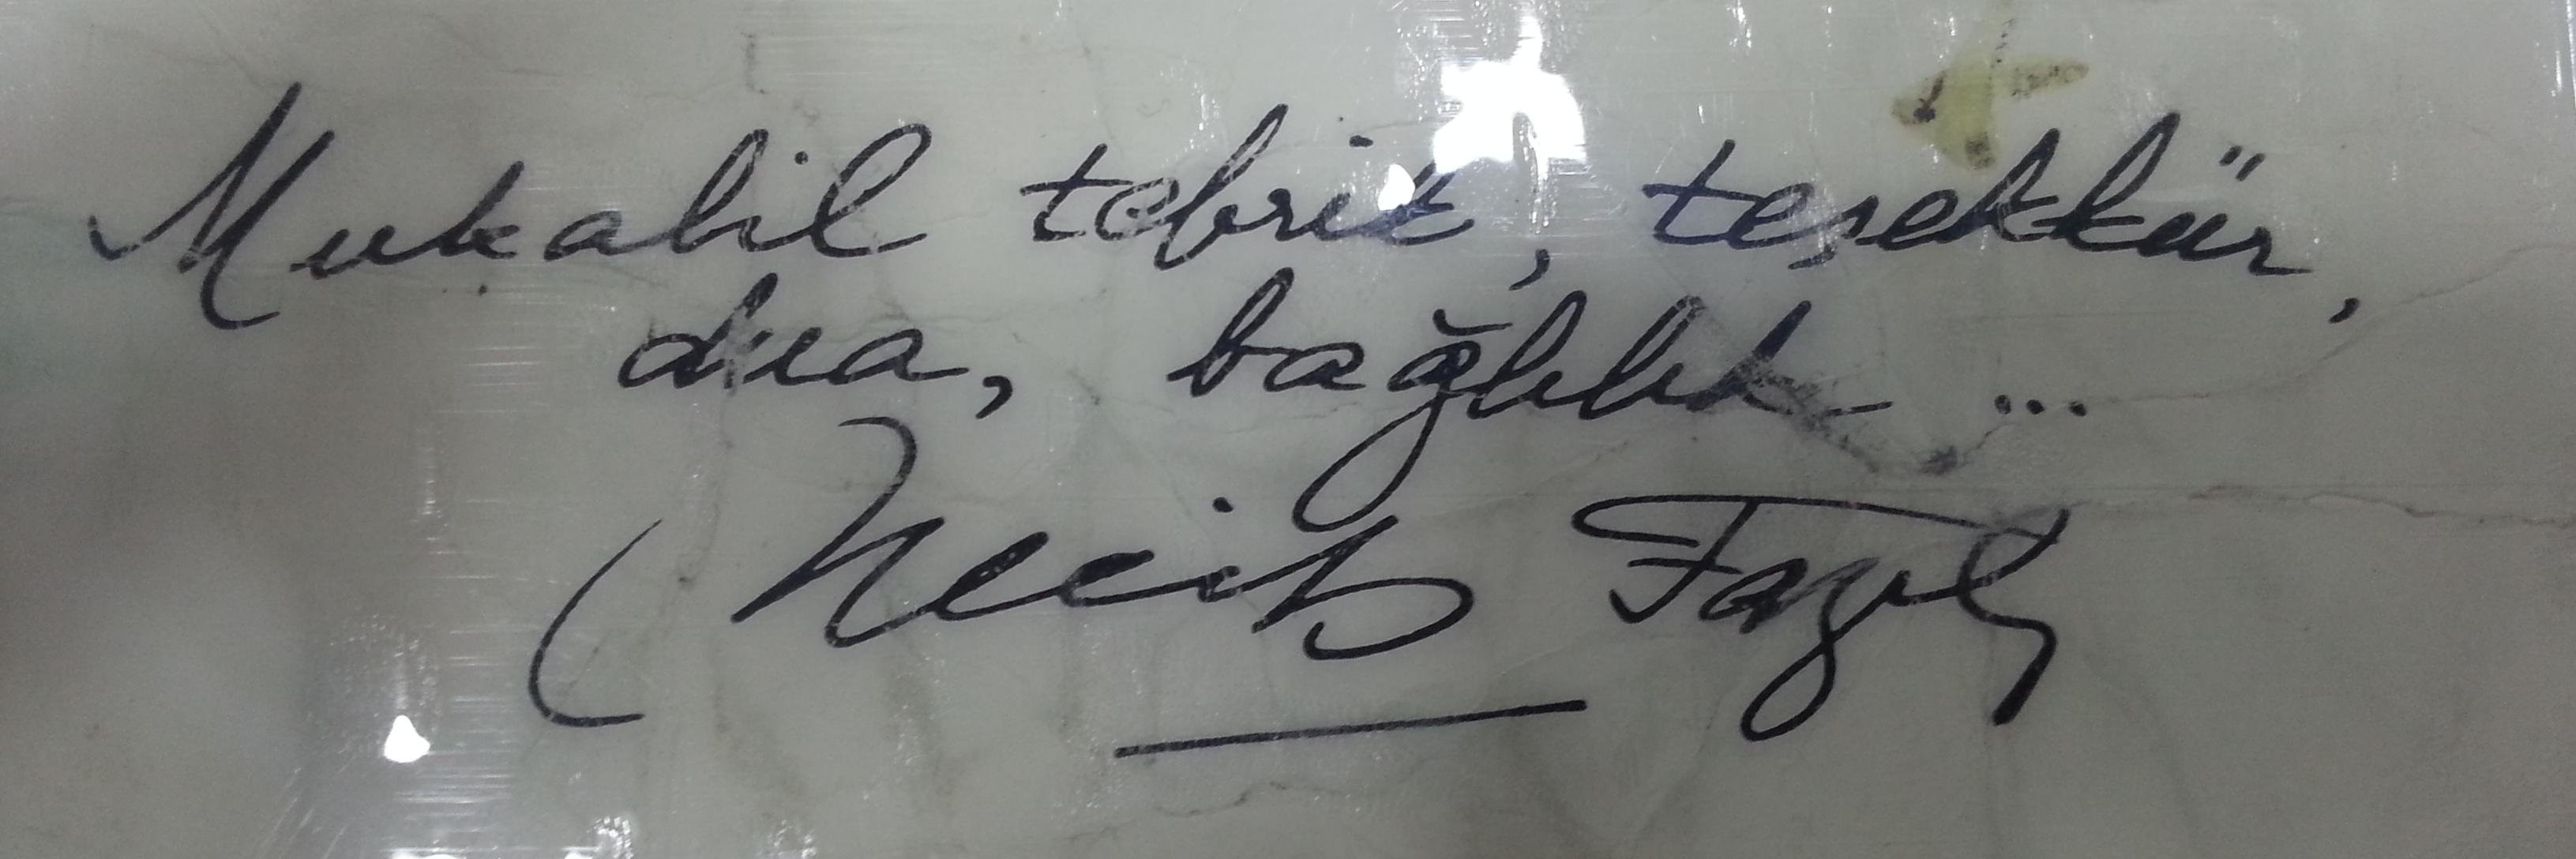 Mukabil tebrik, teşekkür,
dua, bağlılık ...
Necib Fazıl